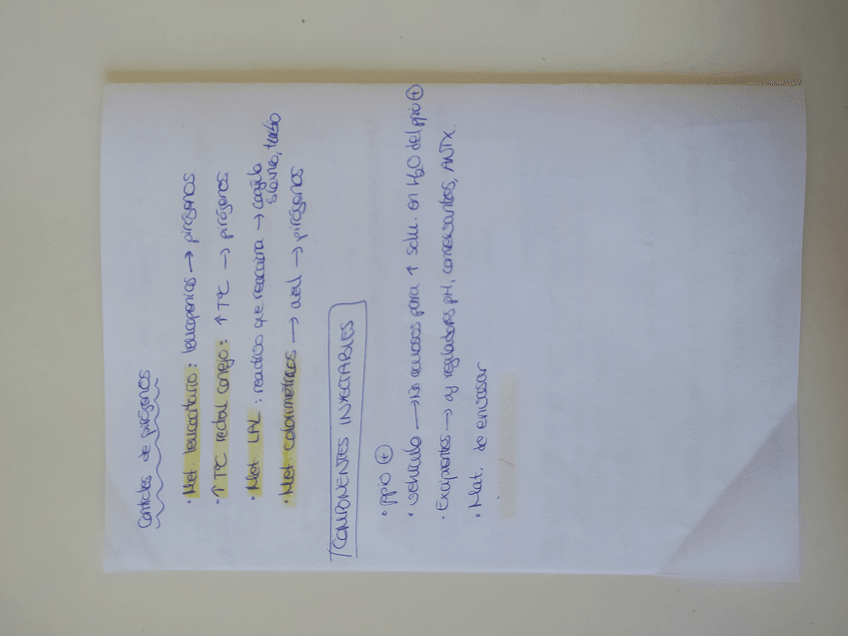 Controles de pirógenos
· Met. leucocitario: leucopenias → pirógenos
· ↑ TªC rectal conejo: ↑ TªC → pirógenos
· Met. LAL: reactivo que reacciona → coágulo
turbio
· Met. colorimétricos → azul → pirógenos
COMPONENTES INYECTABLES
· ppio +
· Vehículo → No acuosos para ↑ solu. en H2O del ppio +
· Excipientes → aj reguladores pH, conservantes, ANTX.
· Mat. de envasar